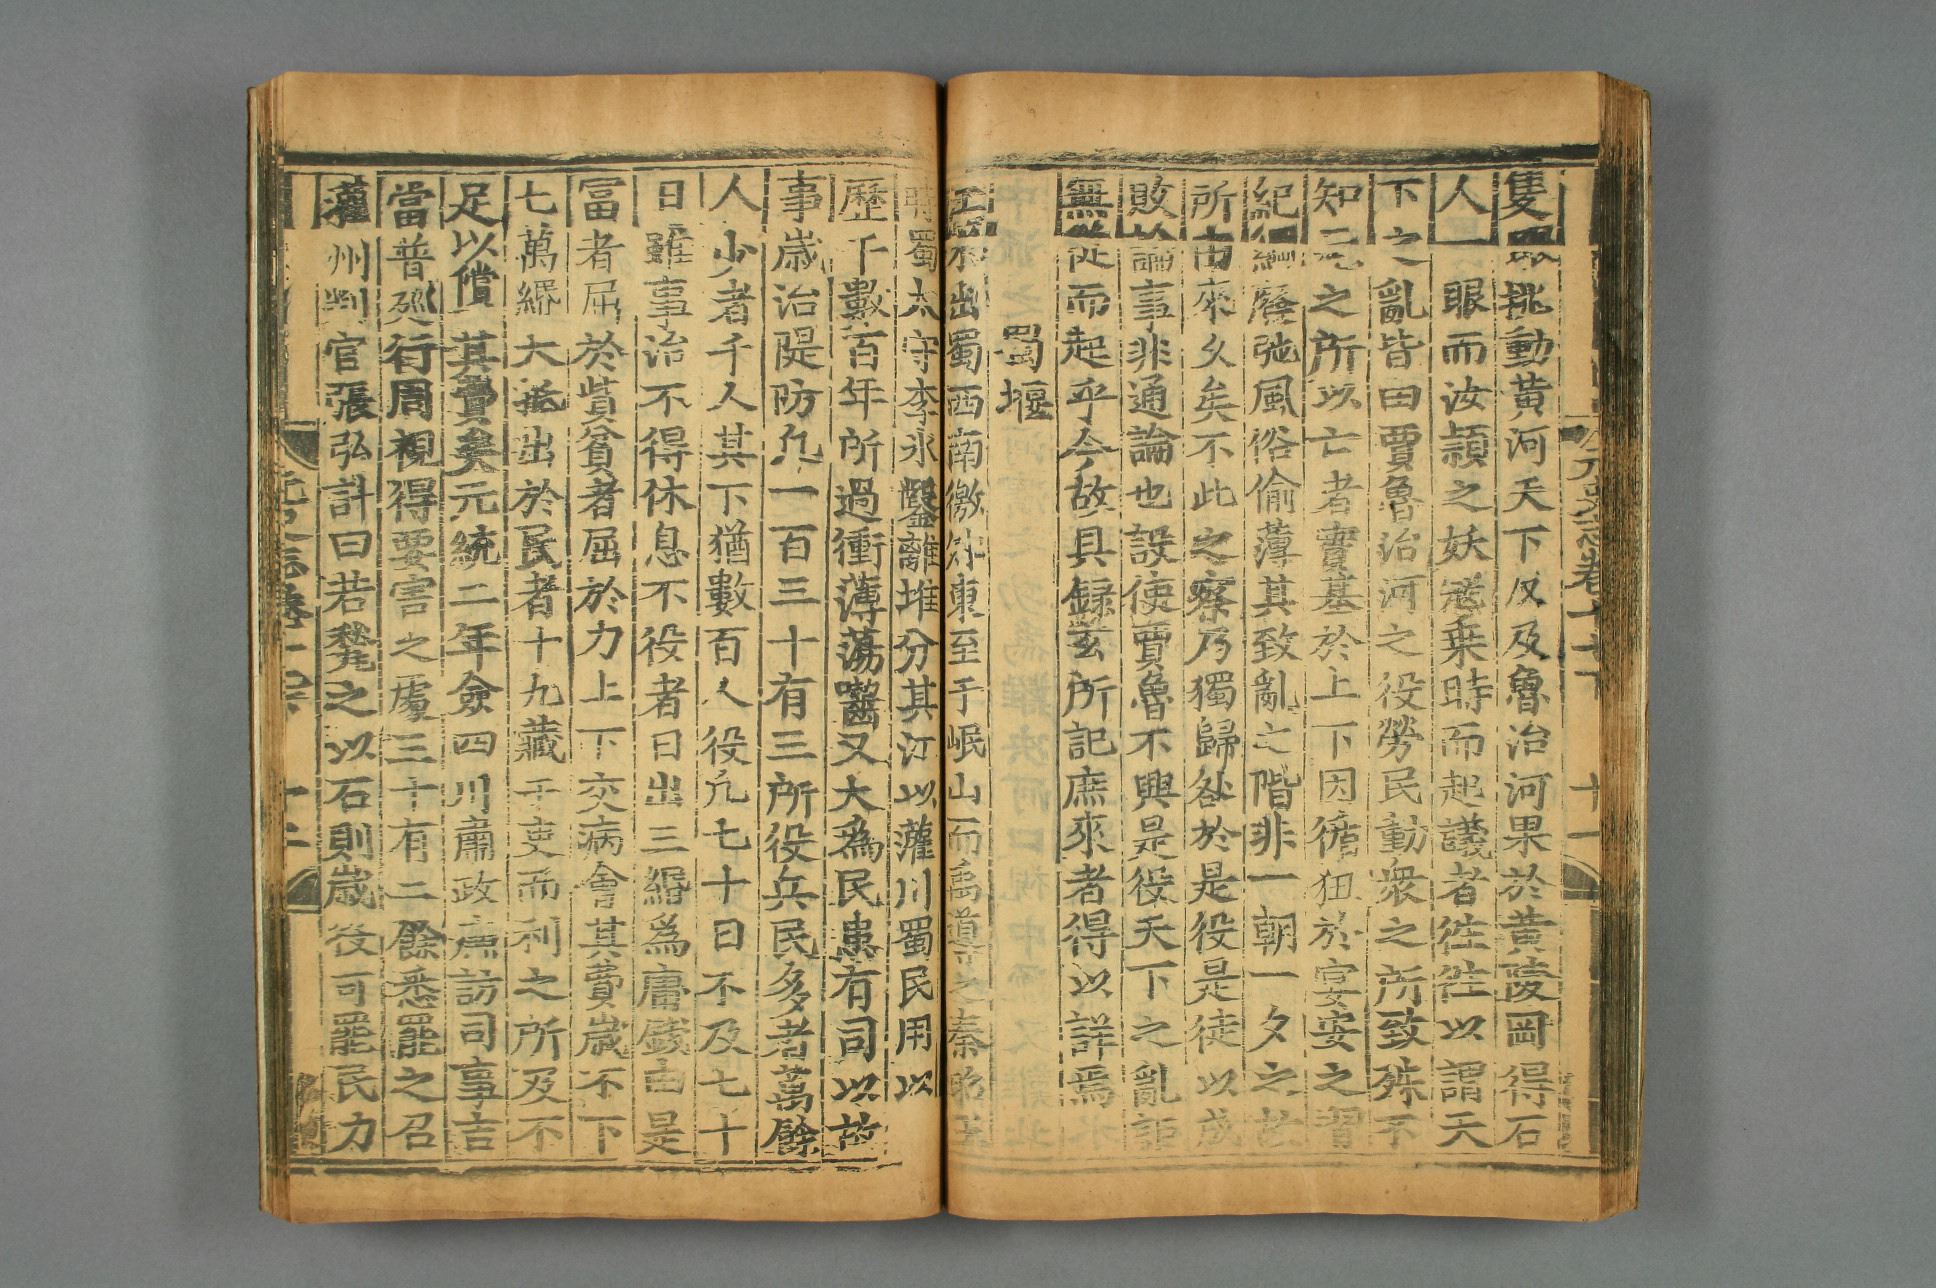 元史志卷十七下 十一
隻眼挑動黃河天下反及魯治河果於黃陵岡得石
人一眼而汝潁之妖寇乗時而起議者徃徃以謂天
下之亂皆由賈魯治河之役勞民動衆之所致殊不
知元之所以亡者實基於上下因循狃於宴安之習
紀綱廢弛風俗偷薄其致亂之階非一朝一夕之故
所由來久矣不此之察乃獨歸咎於是役是徒以成
敗論事非通論也設使賈魯不興是役天下之亂詎
無從而起乎今故具録玄所記庶來者得以詳焉
蜀堰
江水出蜀西南徼外東至于岷山而禹導之秦昭王
時蜀太守李氷鑿離堆分其江以灌川蜀民用以
歷千數百年所過衝薄蕩囓又大爲民患有司以故
事歲治隄防凢一百三十有三所役兵民多者萬餘
人少者千人其下猶數百人役凢七十日不及七十
日雖事治不得休息不役者日出三緡爲庸錢由是
冨者屈於貲貧者屈於力上下交病會其費歲不下
七萬緡大抵出於民者十九藏于吏而利之所及不
足以償其費矣元統二年僉四川肅政亷訪司事吉
當普廵行周視得要害之處三十有二餘悉罷之召
灌州判官張弘計曰若甃之以石則歲役可罷民力
元史志卷十七下 十二